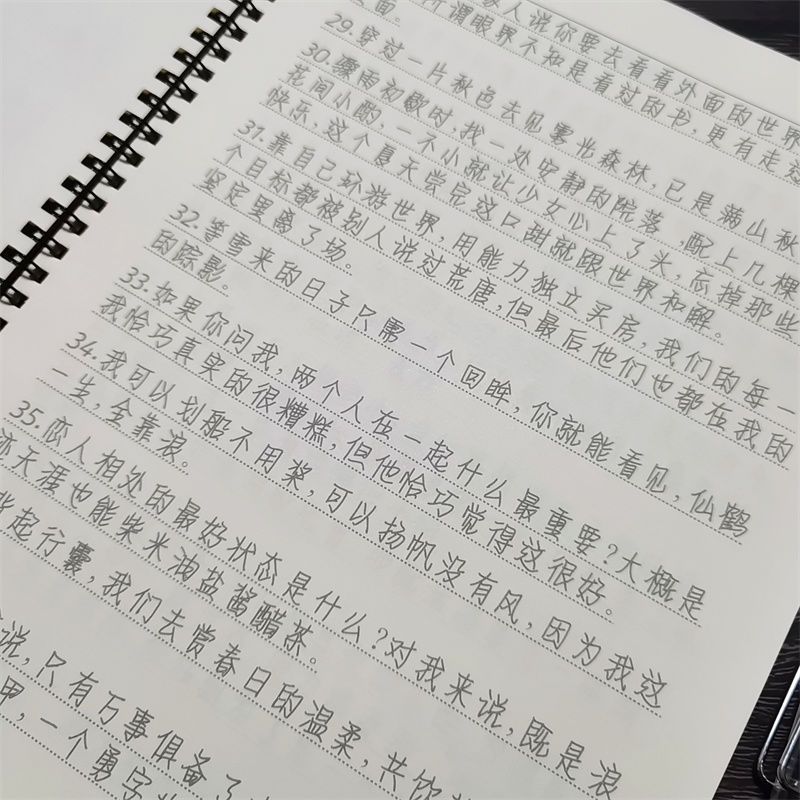 人说你要去看看外面的世界
所谓眼界不知是看过的书,更有走过
面。
29.穿过一片秋色去见雾光森林,已是满山秋
30.骤雨初歇时,找一处安静的院落,配上几棵
花间小酌,一不小就让少女心上了头,忘掉那些
快乐,这个夏天尝完这口甜就跟世界和解。
31.靠自己环游世界,用能力独立买房,我们的每一
个目标都被别人说过荒唐,但最后他们也都在我的
坚定里离了场。
32.等雪来的日子只需一个回眸,你就能看见,仙鹤
的踪影。
33.如果你问我,两个人在一起什么最重要?大概是
我恰巧真实的很糟糕,但他恰巧觉得这很好。
34.我可以划船不用桨,可以扬帆没有风,因为我这
一生,全靠浪。
35.恋人相处的最好状态是什么?对我来说,既是浪
迹天涯也能柴米油盐酱醋茶。
背起行囊,我们去赏春日的温柔,共饮
说,只有万事俱备了
甲,一个勇字